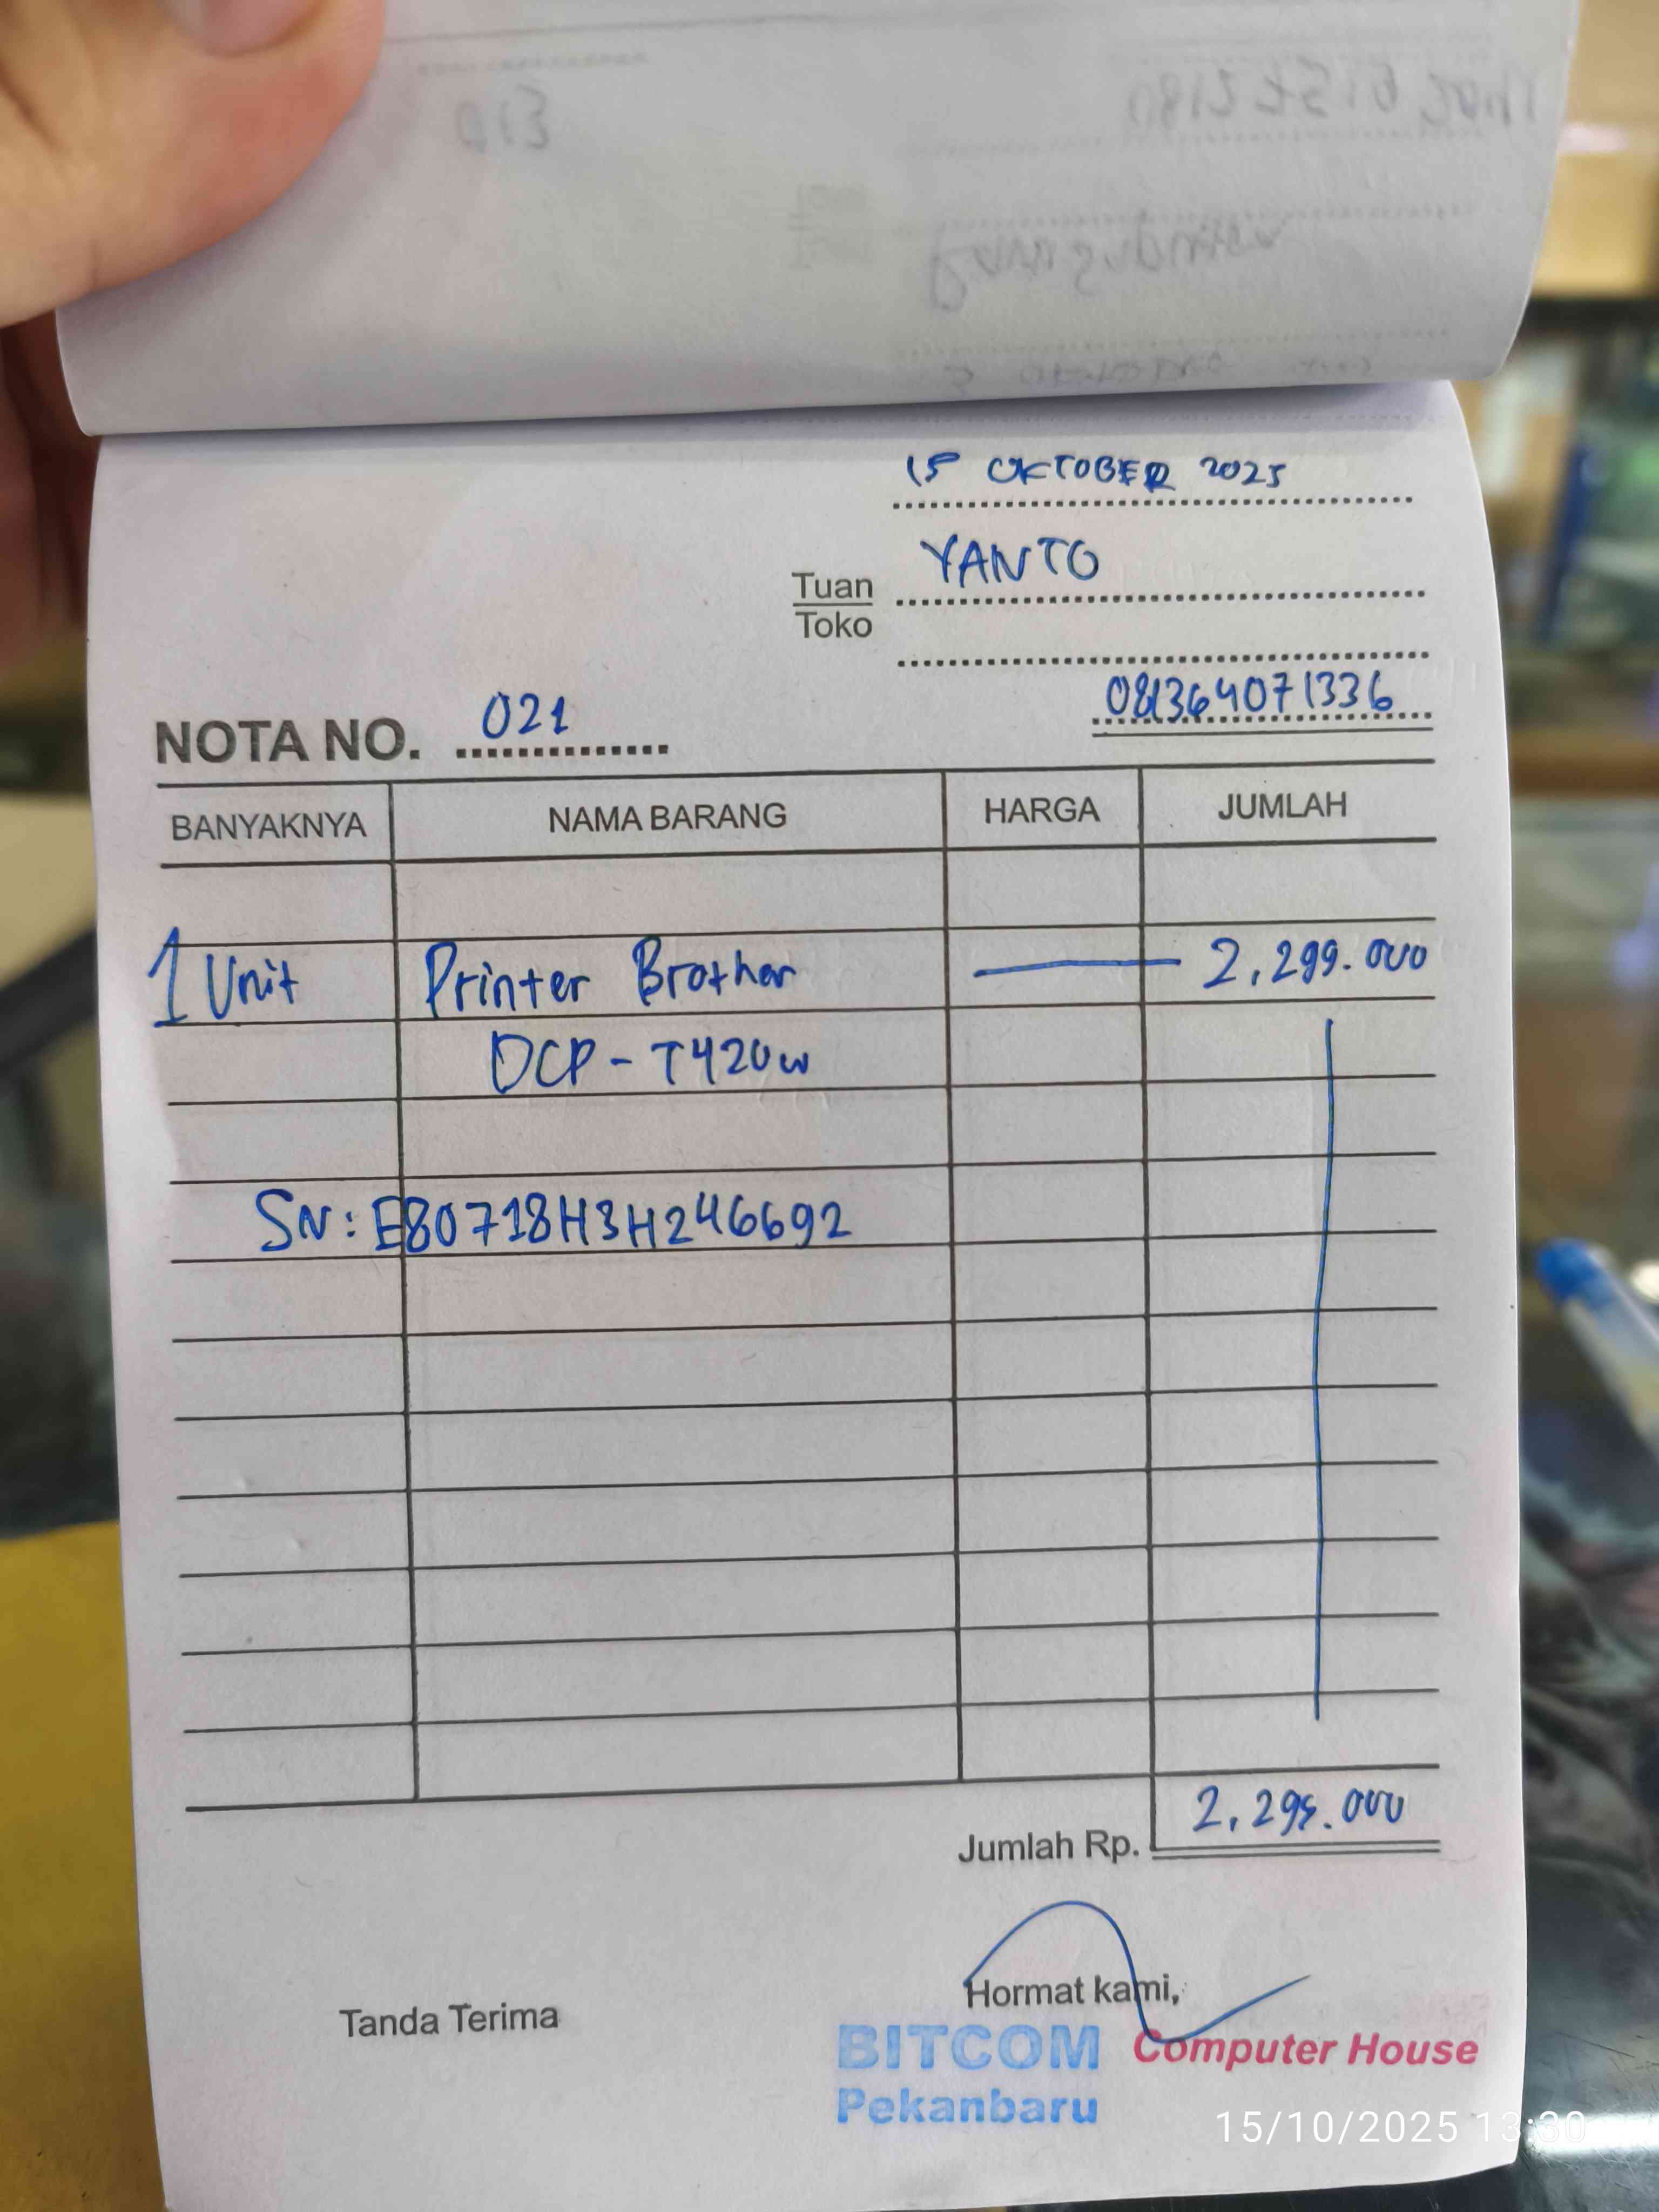 15 OKTOBER 2025
YANTO
Tuan
Toko
081364071336
NOTA NO. 021
BANYAKNYA NAMA BARANG HARGA JUMLAH
1 Unit Printer Brother 2.299.000
DCP-T420W
SN: E80718H3H246692
Jumlah Rp. 2.299.000
Tanda Terima Hormat kami,
BITCOM Computer House
Pekanbaru
15/10/2025 13:30